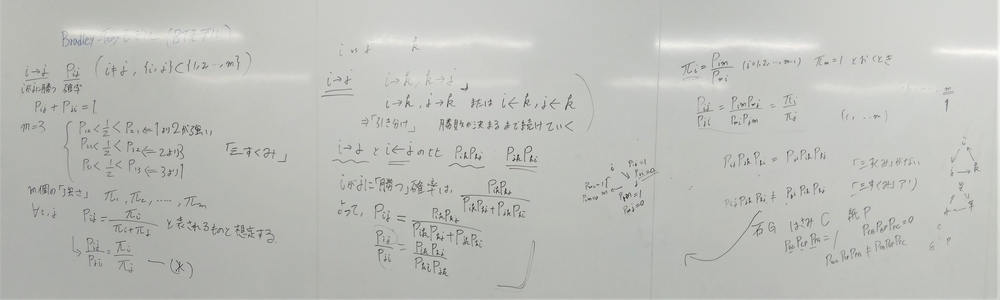 Bradley-Terry (BTモデル)
i→j P_ij (i≠j, {i,j}⊂{1,2,…,m})
iがjに勝つ確率
P_ij + P_ji = 1
m=3
P_12 < 1/2 < P_21 ⇐ 1より2が強い
P_23 < 1/2 < P_32 ⇐ 2より3
P_31 < 1/2 < P_13 ⇐ 3より1
「三すくみ」
m個の「強さ」 π_1, π_2, ……, π_m
∀i,j P_ij = π_i/(π_i+π_j) と表されるものと想定する.
↳ P_ij/P_ji = π_i/π_j —(※)
i vs j k
i→j i→k, k→j
i→k, j→k または i←k, j←k
⇒「引き分け」 勝敗が決まるまで続けていく
i→j と i←j の比 P_ik P_kj P_jk P_ki
iがjに「勝つ」確率は, P_ik P_kj/(P_ik P_kj + P_jk P_ki)
よって, P_ij = P_ik P_kj/(P_ik P_kj + P_jk P_ki)
P_ij/P_ji = P_ik P_kj/(P_ki P_jk)
π_i = P_im/P_mi (i=1,2,…,m-1) π_m=1 とおくとき
P_ij/P_ji = P_im P_mj/(P_mi P_jm) = π_i/π_j
P_ij P_jk P_ki = P_ik P_kj P_ji 「三すくみ」がない
P_ij P_jk P_ki ≠ P_ik P_kj P_ji 「三すくみ」アリ
石G はさみC 紙P
P_GC P_CP P_PG = 1 P_CG P_PC P_GP = 0